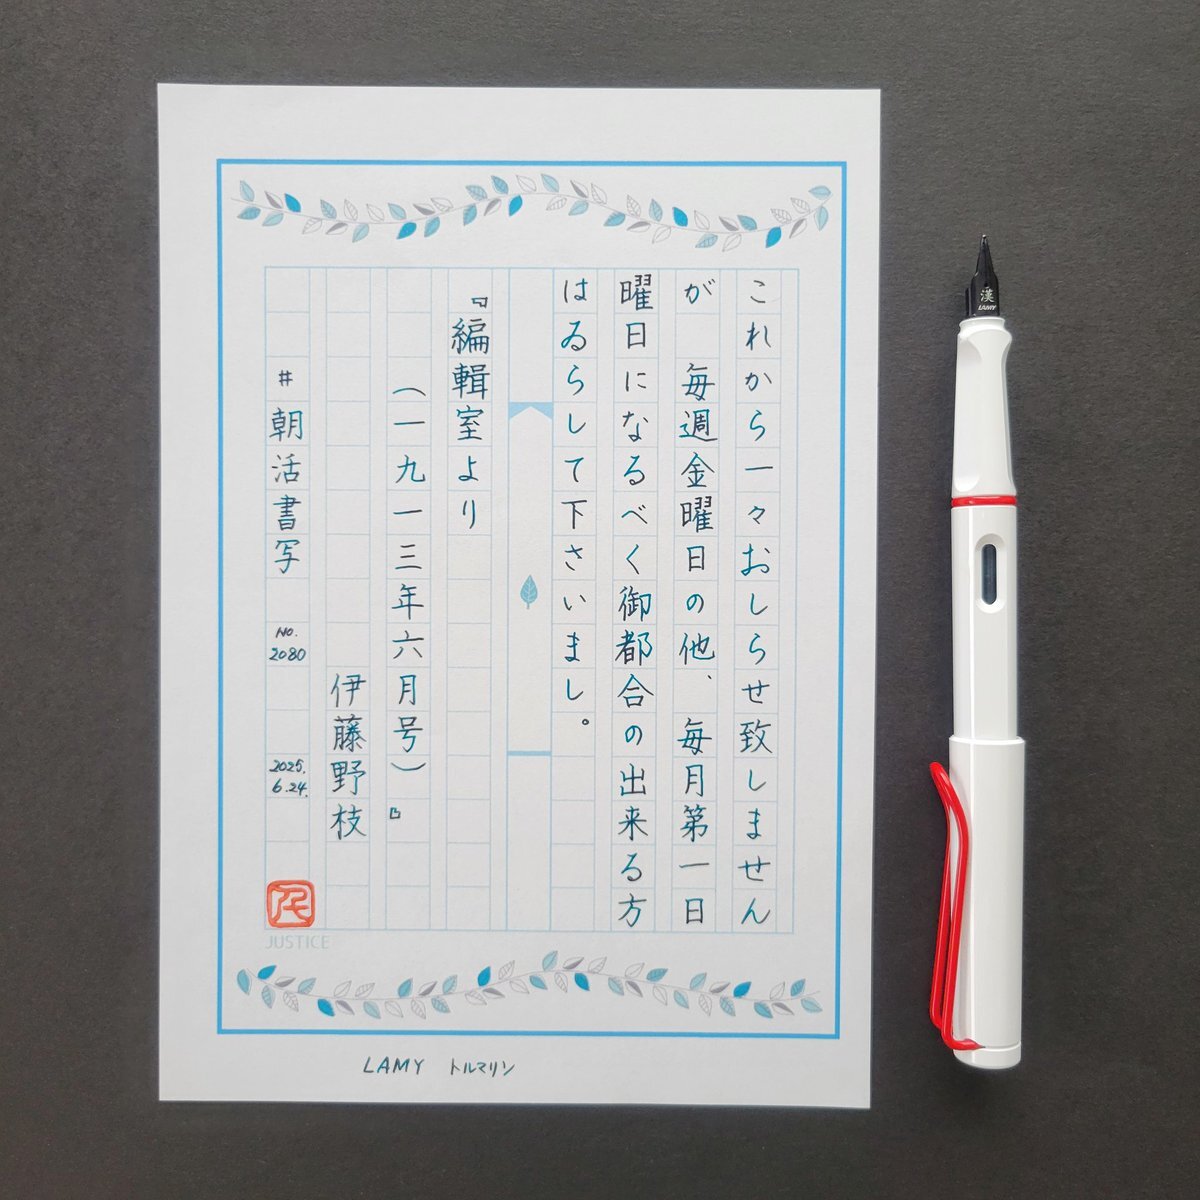 これから一々おしらせ致しません
が　毎週金曜日の他、毎月第一日
曜日になるべく御都合の出来る方
はゐらして下さいまし。
『編輯室より
（一九一三年六月号）』
伊藤野枝
#朝活書写　No.2080　2025.6.24.
JUSTICE
LAMY　トルマリン
漢
LAMY